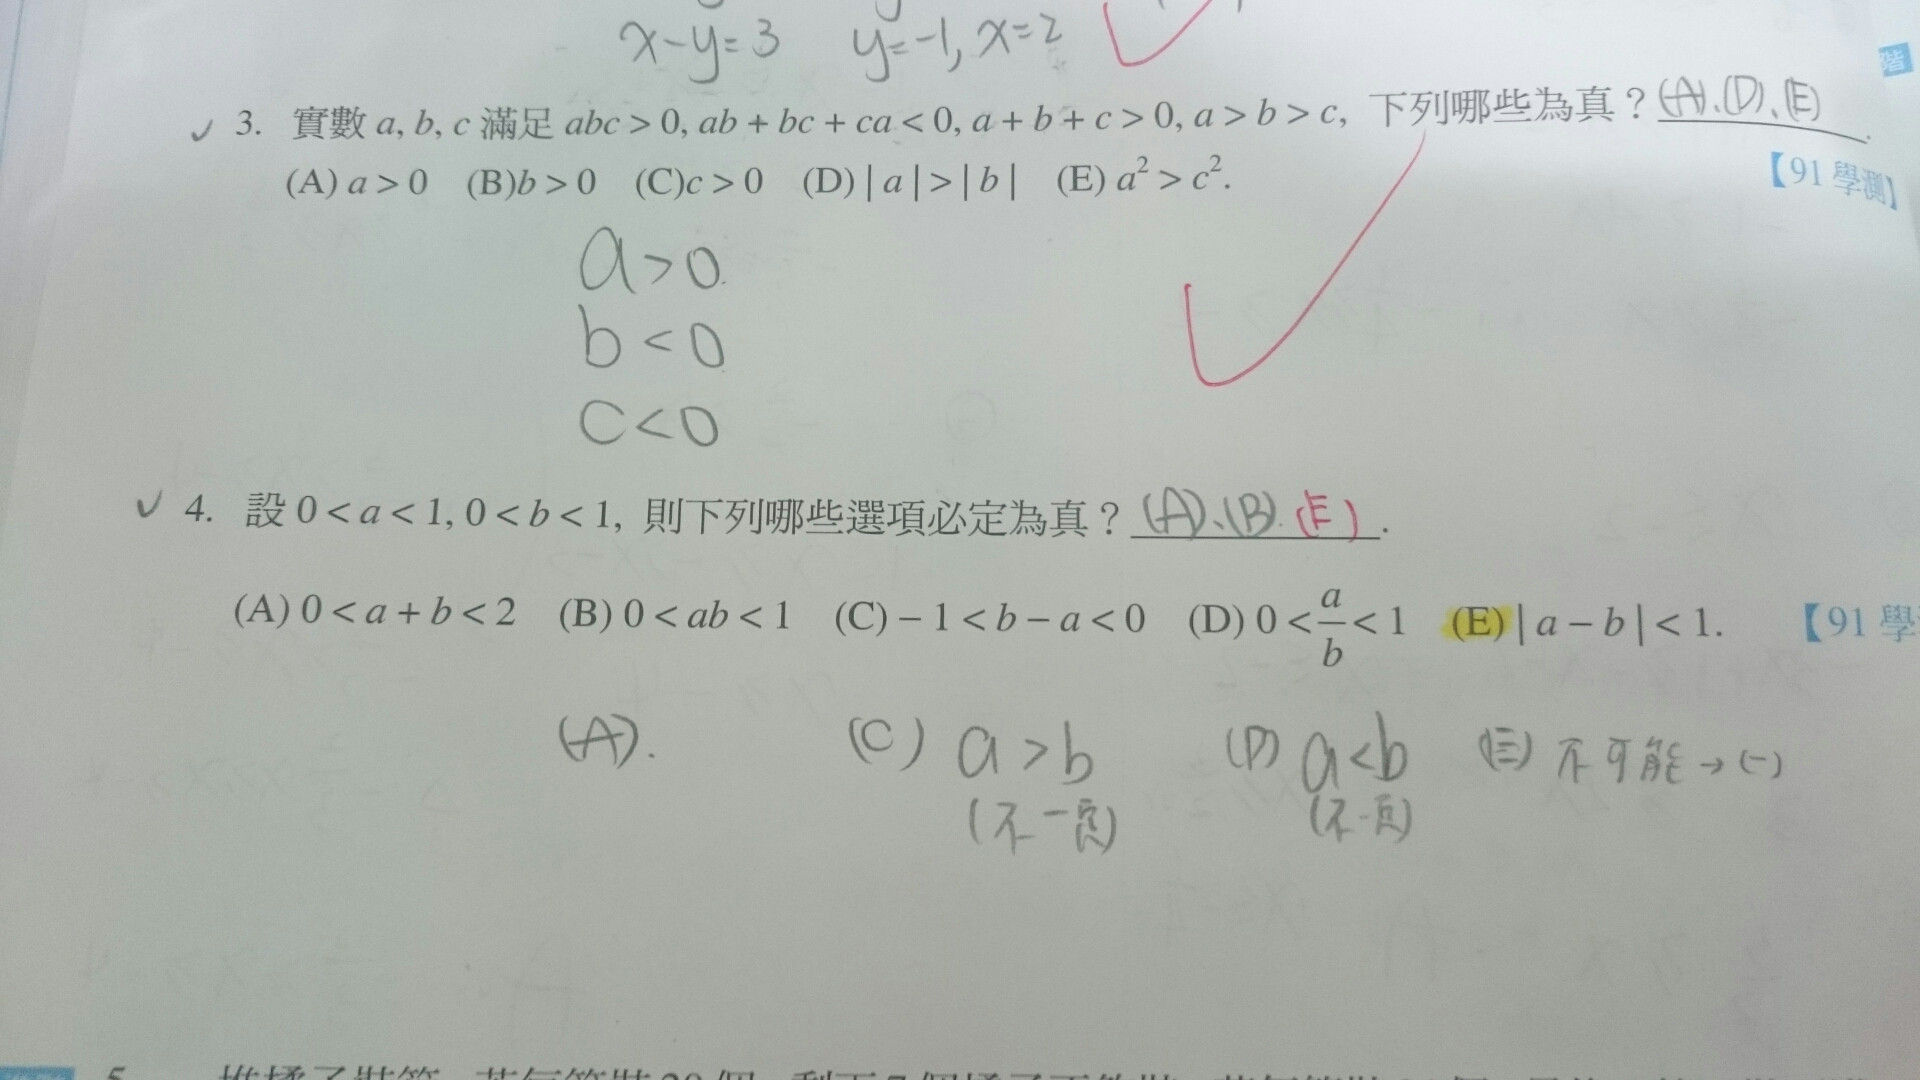 x-y=3 y=-1, x=2
階
3. 實數 a, b, c 滿足 abc > 0, ab + bc + ca < 0, a + b + c > 0, a > b > c, 下列哪些為真？(A)、(D)、(E).
(A) a > 0 (B)b > 0 (C)c > 0 (D) | a | > | b | (E) a² > c². 【91 學測】
a>0.
b<0
c<0
4. 設 0 < a < 1, 0 < b < 1, 則下列哪些選項必定為真？(A)、(B). (E).
(A) 0 < a + b < 2 (B) 0 < ab < 1 (C) – 1 < b – a < 0 (D) 0 < a/b < 1 (E) | a – b | < 1. 【91 學
(A). (C) a>b (D) a<b (E) 不可能→(-)
(不一定) (不一定)
5.